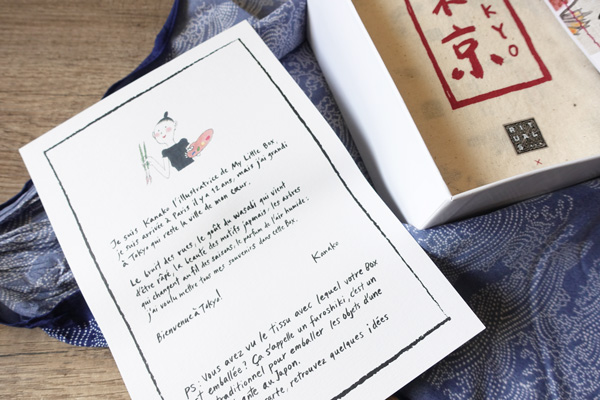 Je suis Kanako l'illustratrice de My Little Box,
je suis arrivée à Paris il y a 12 ans, mais j'ai grandi
à Tokyo qui reste la ville de mon cœur.
Le bruit des rues, le goût du wasabi qui vient
d'être râpé, la beauté des motifs japonais, les arbres
qui changent au fil des saisons, le parfum de l'air humide:
j'ai voulu mettre tous mes souvenirs dans cette Box.
Kanako
Bienvenue à Tokyo!
PS: Vous avez vu le tissu avec lequel votre Box
t emballée? Ça s'appelle un furoshiki, c'est un
traditionnel pour emballer les objets d'une
ante au Japon.
arte, retrouvez quelques idées
京
KYO
RITUALS